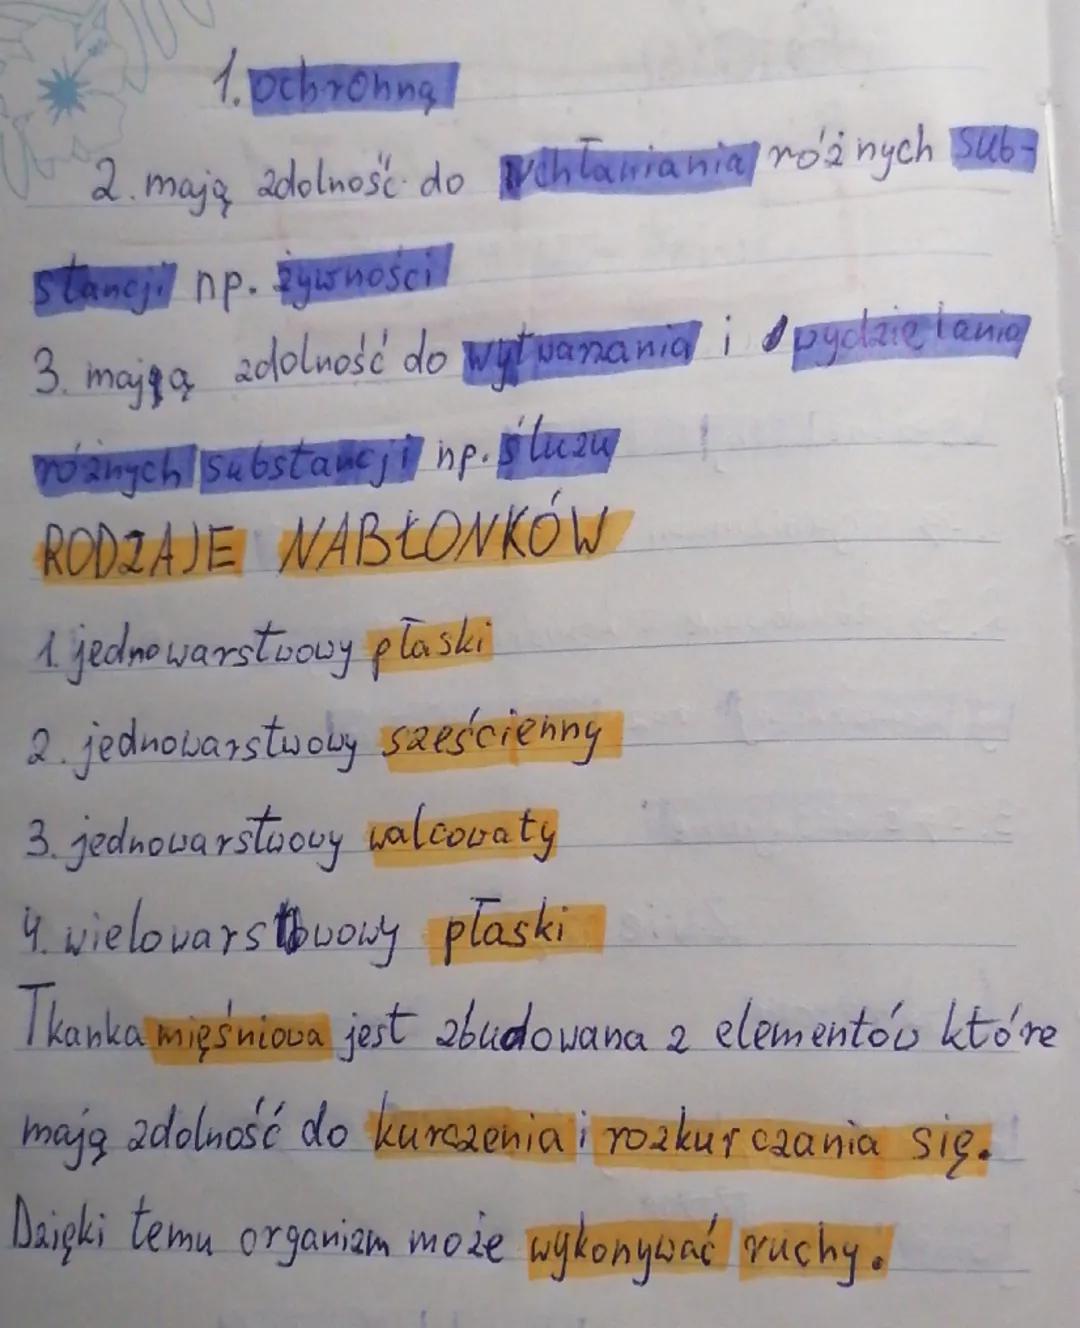 1. ochronną
2. mają zdolność do wchłaniania różnych sub-
stancji np. żywności
3. mają zdolność do wytwarzania i wydzielania
różnych substancji np. śluzu
RODZAJE NABŁONKÓW
1. jednowarstwowy płaski
2. jednowarstwowy sześcienny
3. jednowarstwowy walcowaty
4. wielowarstwowy płaski
Tkanka mięśniowa jest zbudowana z elementów które
mają zdolność do kurczenia i rozkurczania się.
Dzięki temu organizm może wykonywać ruchy.